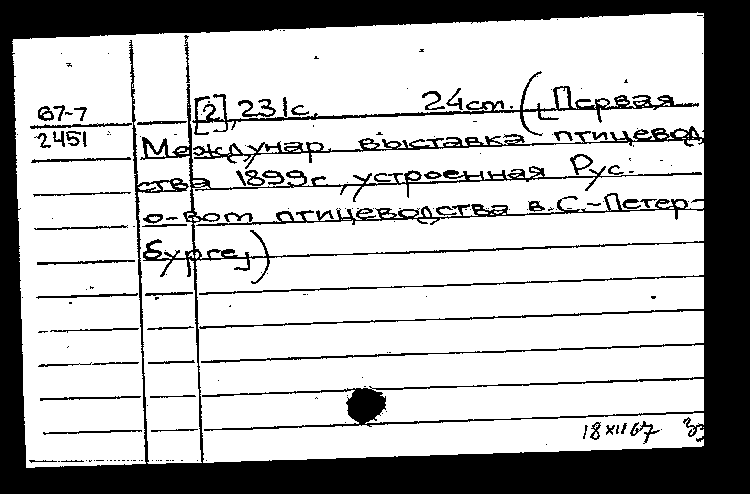 67-7
2451
[2], 231с. 24см. ([Первая
Междунар. выставка птицевод-
ства 1899г., устроенная Рус.
о-вом птицеводства в С.-Петер-
бурге])
18 XII 67